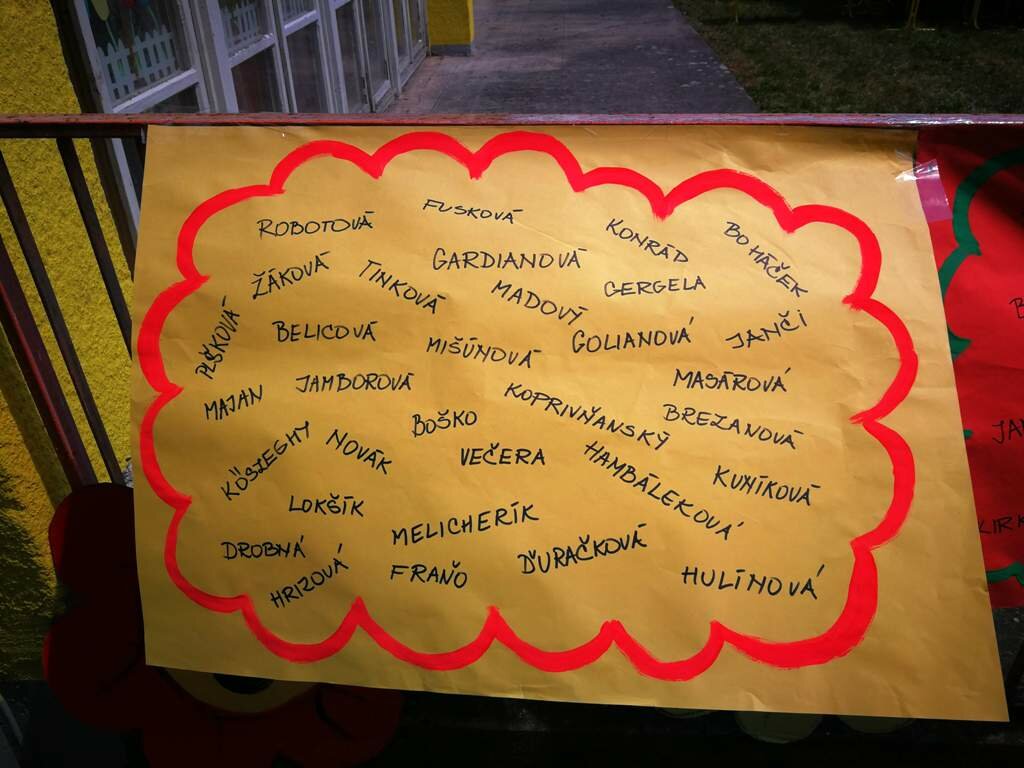 ROBOTOVÁ
FUSKOVÁ
KONRÁD
BOHÁČEK
ŽÁKOVÁ
TINKOVÁ
GARDIANOVÁ
MADOVÝ
GERGELA
PLŠKOVÁ
BELICOVÁ
MIŠÚNOVÁ
GOLIANOVÁ
JANČI
MAJAN
JAMBOROVÁ
KOPRIVŇANSKÝ
MASÁROVÁ
BREZANOVÁ
KÖSZEGHY
NOVÁK
BOŠKO
VEČERA
HAMBÁLEKOVÁ
KUNÍKOVÁ
LOKŠÍK
MELICHERÍK
DROBNÁ
HRIZOVÁ
FRAŇO
ĎURAČKOVÁ
HULÍNOVÁ